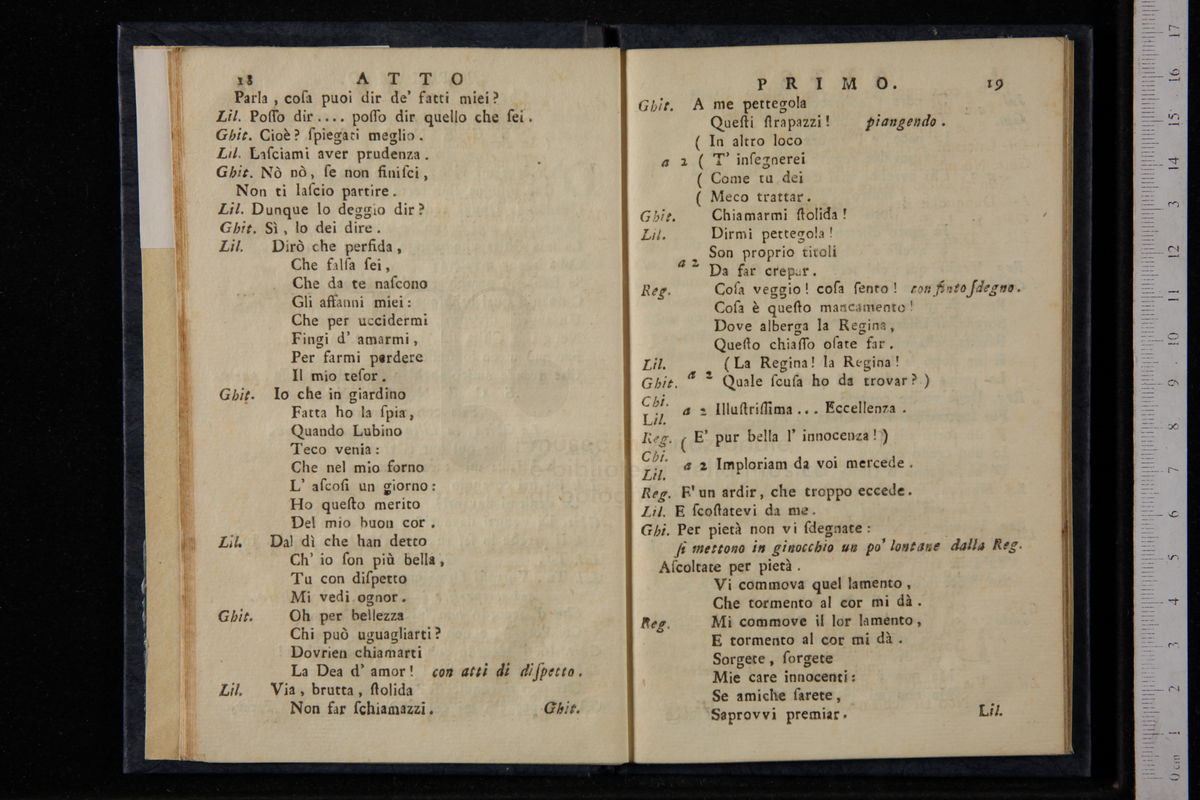 18 ATTO
Parla, coſa puoi dir de' fatti miei?
Lil. Poſſo dir.... poſſo dir quello che ſei.
Ghit. Cioè? ſpiegati meglio.
Lil. Laſciami aver prudenza.
Ghit. Nò nò, ſe non finiſci,
Non ti laſcio partire.
Lil. Dunque lo deggio dir?
Ghit. Sì, lo dei dire.
Lil. Dirò che perfida,
Che falſa ſei,
Che da te naſcono
Gli affanni miei:
Che per uccidermi
Fingi d' amarmi,
Per farmi perdere
Il mio teſor.
Ghit. Io che in giardino
Fatta ho la ſpia,
Quando Lubino
Teco venia:
Che nel mio forno
L' aſcoſi un giorno:
Ho queſto merito
Del mio buon cor.
Lil. Dal dì che han detto
Ch' io ſon più bella,
Tu con diſpetto
Mi vedi ognor.
Ghit. Oh per bellezza
Chi può uguagliarti?
Dovrien chiamarti
La Dea d' amor! con atti di diſpetto.
Lil. Via, brutta, ſtolida
Non far ſchiamazzi. Ghit.
PRIMO. 19
Ghit. A me pettegola
Queſti ſtrapazzi! piangendo.
( In altro loco
a 2 ( T' inſegnerei
( Come tu dei
( Meco trattar.
Ghit. Chiamarmi ſtolida!
Lil. Dirmi pettegola!
Son proprio titoli
a 2
Da far crepar.
Reg. Coſa veggio! coſa ſento! con finto ſdegno.
Coſa è queſto mancamento!
Dove alberga la Regina,
Queſto chiaſſo oſate far.
Lil. (La Regina! la Regina!
Ghit. a 2 Quale ſcuſa ho da trovar?)
Chi.
a 2 Illuſtriſſima... Eccellenza.
Lil.
Reg. ( E' pur bella l' innocenza!)
Chi.
a 2 Imploriam da voi mercede.
Lil.
Reg. E' un ardir, che troppo eccede.
Lil. E ſcoſtatevi da me.
Ghi. Per pietà non vi ſdegnate:
ſi mettono in ginocchio un po' lontane dalla Reg.
Aſcoltate per pietà.
Vi commova quel lamento,
Che tormento al cor mi dà.
Reg. Mi commove il lor lamento,
E tormento al cor mi dà.
Sorgete, ſorgete
Mie care innocenti:
Se amiche ſarete,
Saprovvi premiar. Lil.